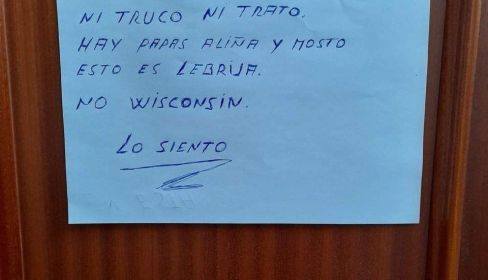 NI TRUCO NI TRATO.
HAY PAPAS ALIÑA Y MOSTO
ESTO ES LEBRIJA.
NO WISCONSIN.
LO SIENTO